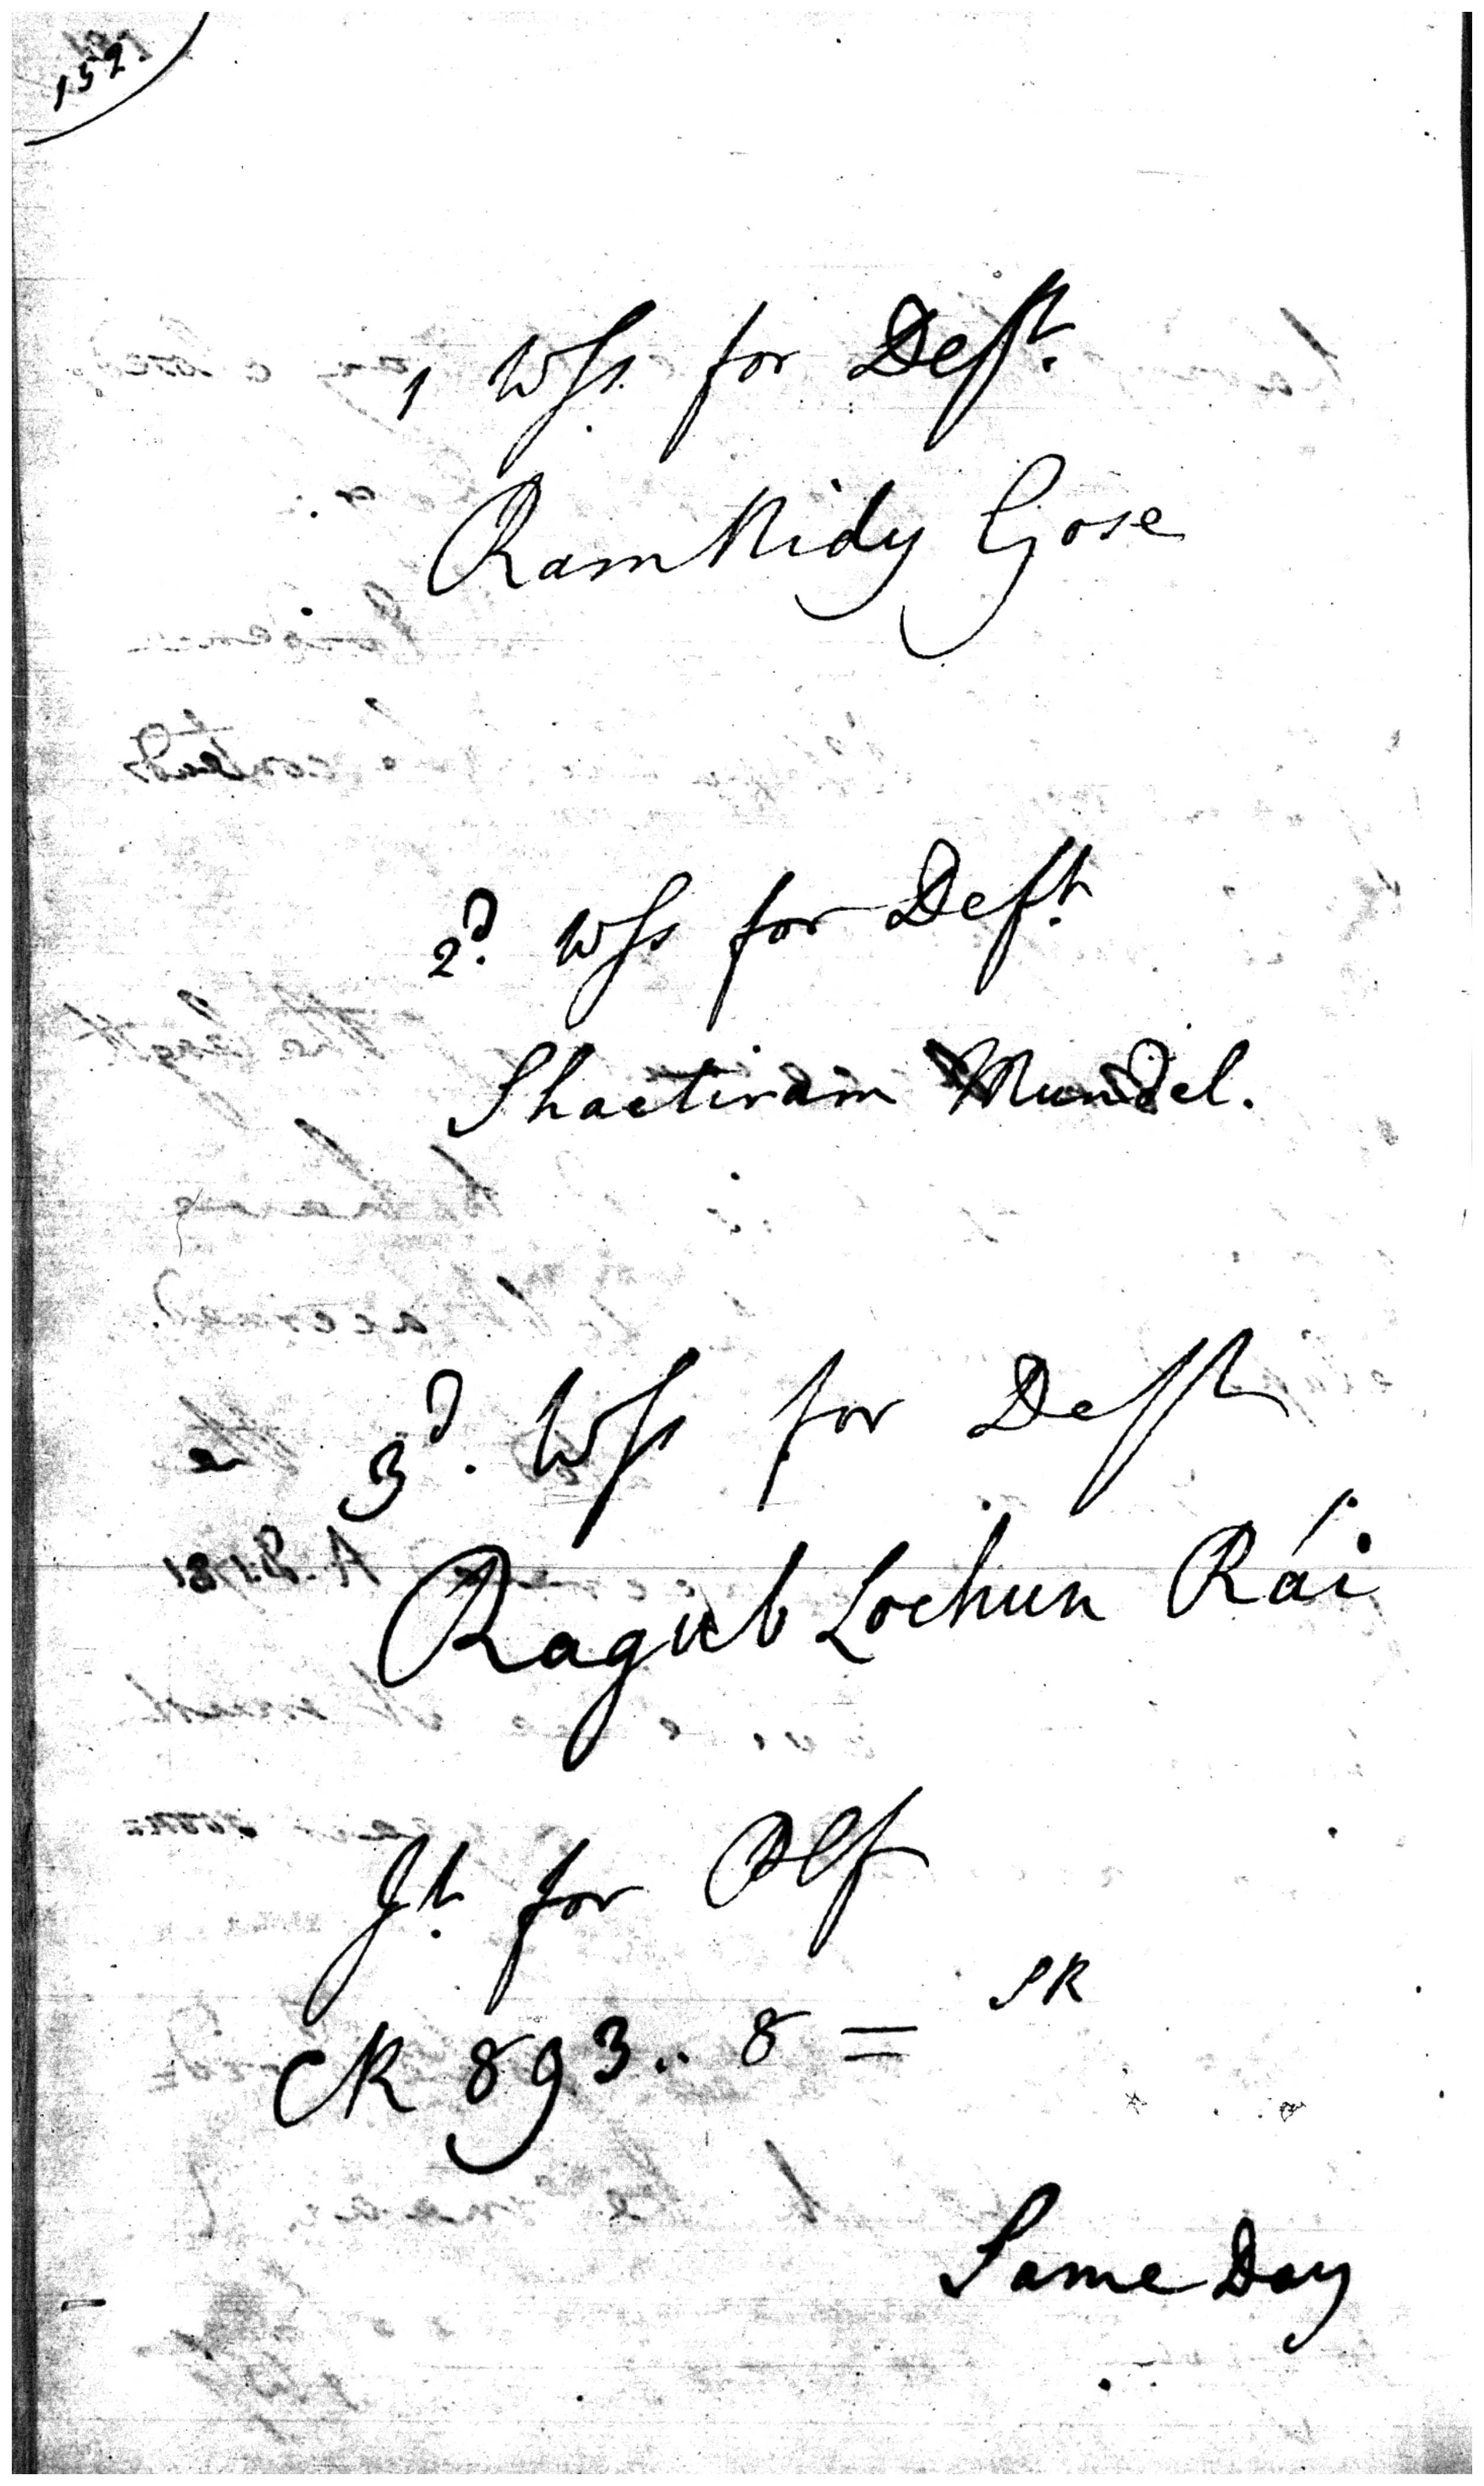 1 Wss for Deft.
RamNidy Gose
2d. Wss for Deft.
Shactiram Mundel.
3d. Wss for Deft
Ragub Lochun Rái
Jt. for Plf
CR 893.. 8 = SR
Same Day